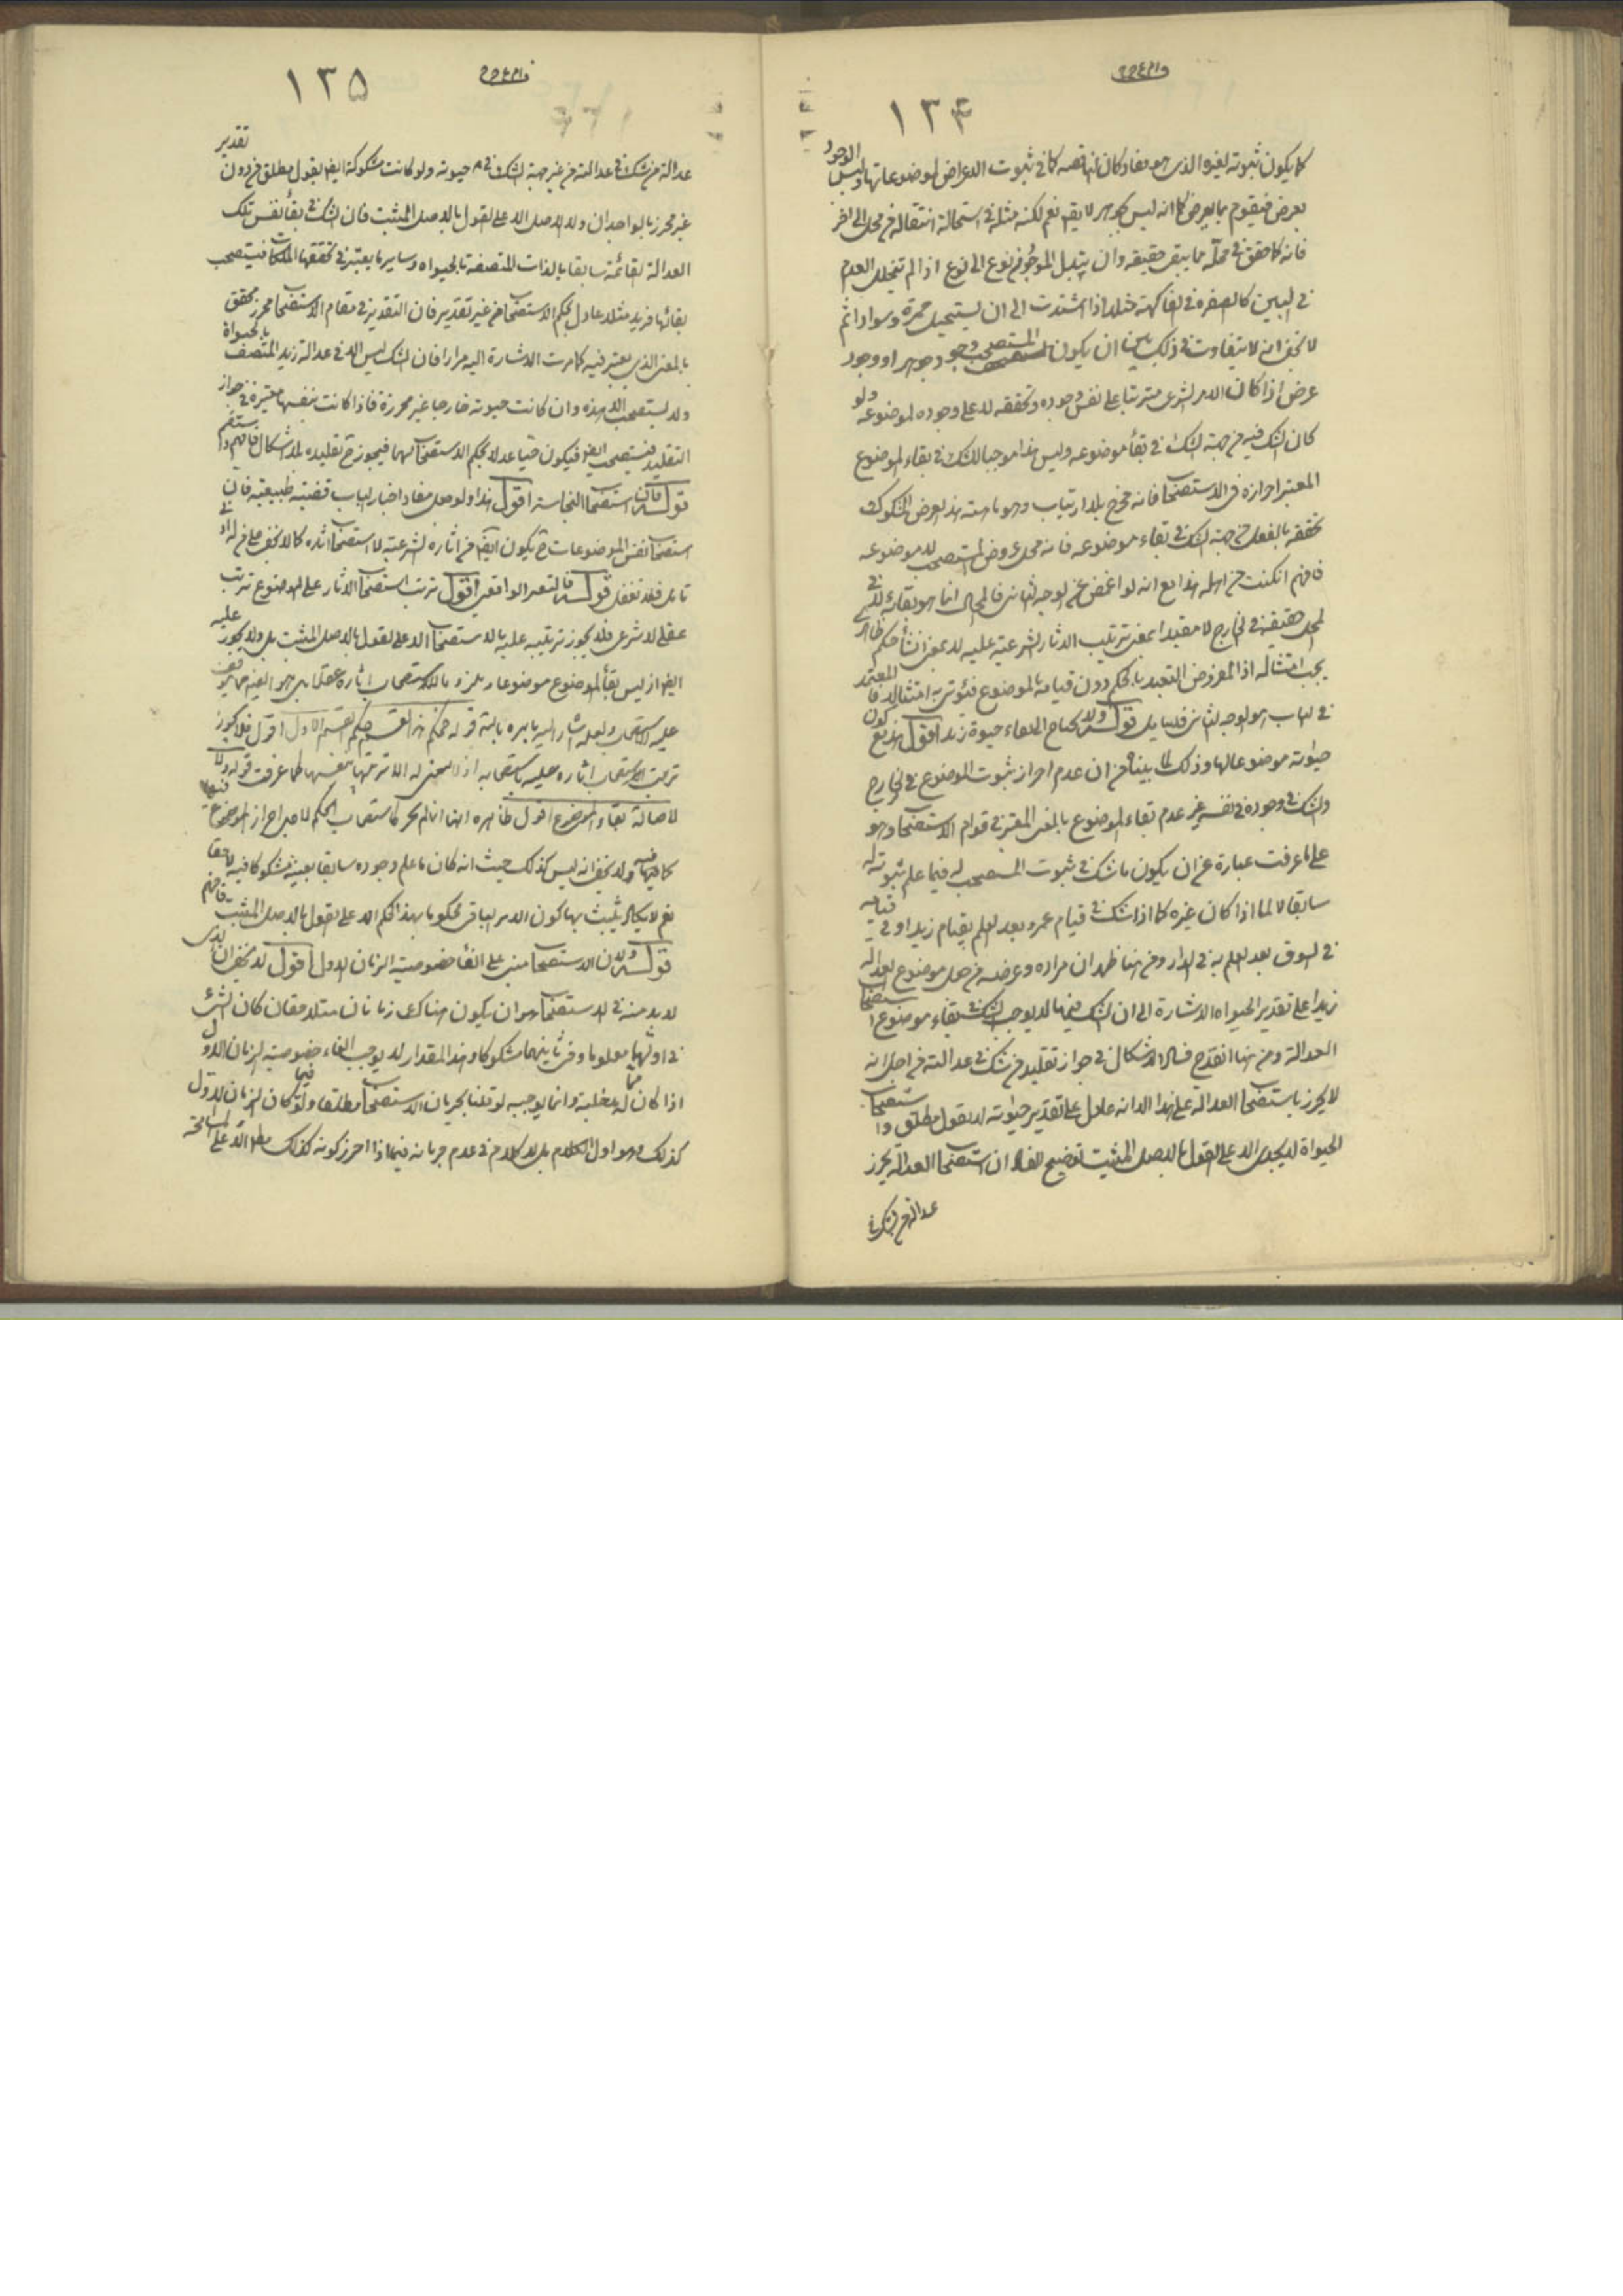 ١٣٤
كما يكون ثبوته لغيره الذى هو مفاد كان الناقصه كما فى ثبوت الاعراض لموضوعاتها وليس الوجود
بعرض فيقوم بما يعرض كما انه ليس بجوهر لا يقم نعم لكنه مثله فى استحالة انتقاله من محل الى اخر
فانه كما حقق فى محله مما يبقى حقيقه وان يتبدل الموجود من نوع الى نوع اذا لم يتخلل العدم
فى البين كالصفره فى الفاكهة مثلا اذا اشتدت الى ان يستحيل حمرة وسوادا ثم
لا يخفى انه لا يتفاوت فى ذلك بين ان يكون المستصحب وجود جوهر او وجود
عرض اذا كان الامر الشرعى مترتبا على نفس وجوده وتحققه لا على وجوده لموضوعه ولو
كان الشك فيه من جهة الشك فى بقاء موضوعه وليس هذا موجبا للشك فى بقاء الموضوع
المعتبر احرازه فى الاستصحاب فانه محرز بلا ارتياب وهو ماهية هذا العرض المشكوك
تحققه بالفعل من جهة الشك فى بقاء موضوعه فانه محل عروض المستصحب لا موضوعه
فافهم ان كنت من اهله هذا مع انه لو اغمض عن الوجه الثانى فالمحال انما هو بقائه فى
المحل حقيقة فى الخارج لا تعبدا بمعنى ترتيب الاثار الشرعية عليه لا بمعنى انشاء حكم ظاهر
يجب امتثاله اذ المفروض التعبد بالحكم دون قيامه بالموضوع فيؤتى به امتثالا فالمعتمد
فى الباب هو الوجه الثانى فليتامل قوله ولا يحتاج الى ابقاء حيوة زيد اقول هذا مع كون
حياته موضوعا لها وذلك لما بيناه من ان عدم احراز ثبوت الموضوع فى الخارج
والشك فى وجوده فى نفسه غير عدم بقاء الموضوع بالمعنى المعتبر فى قوام الاستصحاب وهو
على ما عرفت عبارة عن ان يكون ما شك فى ثبوت المستصحب له فيما علم ثبوته له
سابقا لا لما اذا كان غيره كما اذا شك فى قيام عمرو بعد العلم بقيام زيد او فى قيامه
فى السوق بعد العلم به فى الدار ومن هنا ظهر ان مراده وغرضه من جعل موضوع العدالة
زيدا على تقدير الحيواه الاشارة الى ان الشك فيها لا يوجب الشك فى بقاء موضوع استصحاب
العدالة ومن هنا انقدح فساد الاشكال فى جواز تقليد من شك فى عدالته من اجل انه
لا يحرز باستصحاب العدالة على هذا الا انه عادل على تقدير حيوته لا بقول مطلق واستصحاب
الحيواة لا يجدى الا على القول بالاصل المثبت توضيح الفساد ان استصحاب العدالة يحرز
عدالة من شك فى
١٣٥
عدالة من شك فى عدالته من غير جهة الشك فى حيوته ولو كانت مشكوكة ايضا بقول مطلق من دون تقدير
غير محرز بالوجدان ولا بالاصل الا على القول بالاصل المثبت فان الشك فى بقاء نفس تلك
العدالة القائمة سابقا بالذات المتصفة بالحيواه وساير ما يعتبر فى تحققها فيستصحب
بقائها فزيد مثلا عادل بحكم الاستصحاب من غير تقدير فان التقدير فى مقام الاستصحاب محرز محقق
بالمعنى الذى يعتبر فيه كما مرت الاشارة اليه مرارا فان الشك ليس الا فى عدالة زيد المتصف بالحيواة
ولا يستصحب الا هذه وان كانت حيوته خارجا غير محرزة فاذا كانت بنفسها معتبرة فى جواز
التقليد فتستصحب ايضا فيكون حيا عدلا بحكم الاستصحاب لهما فيجوز ح تقليده بلا اشكال فافهم واستقم
قوله فان استصحاب النجاسة اقول هذا ولو جعل مفاد اخبار الباب قضية طبيعية فان
استصحاب نفس الموضوعات ح يكون ايضا من اثاره الشرعية لا استصحاب اثاره كما لا يخفى على من له ادنى
تامل فلا تغفل قوله فالتعبد الواقعى اقول ترتب استصحاب الاثار على الموضوع ترتب
عقلى لا شرعى فلا يجوز ترتيبه عليه بالاستصحاب الا على القول بالاصل المثبت بل ولا يجوز عليه
ايضا اذ ليس بقاء الموضوع موضوعا وملزوما لاستصحاب اثاره عقلا بل هو ايضا مما يتوقف
عليه الاستصحاب ولعله اشار اليه بامره بالتامل قوله فحكم هذا القسم حكم القسم الاول اقول فلا يجوز
ترتب استصحاب اثاره عليه باستصحابه اذ لا معنى له الا ترتبها بنفسها كما عرفت قوله ولا
لاصالة بقاء الموضوع اقول ظاهره انها انما لم يجر كاستصحاب الحكم لاجل احراز الموضوع فيها
كما فيه ولا يخفى انه ليس كذلك حيث انه كان ما علم وجوده سابقا بعينه مشكوكا فيه لاحقا
نعم لا يكاد يثبت بها كون الامر الباقى محكوما بهذا الحكم الا على القول بالاصل المثبت فافهم
قوله ولان الاستصحاب مبنى على الغاء خصوصية الزمان الاول اقول لا يخفى ان الذى
لا بد منه فى الاستصحاب هو ان يكون هناك زمانان متلاصقان كان الشىء
فى اولهما معلوما وفى ثانيهما مشكوكا وهذا المقدار لا يوجب الغاء خصوصية الزمان الاول
اذا كان له دخل وانما يوجبه لو قلنا بجريان الاستصحاب مطلقا ولو فيما كان الزمان الاول
كذلك وهو اول الكلام بل لا كلام فى عدم جريانه فيما اذا احرز كونه كذلك مطلقا الا على المسامحة